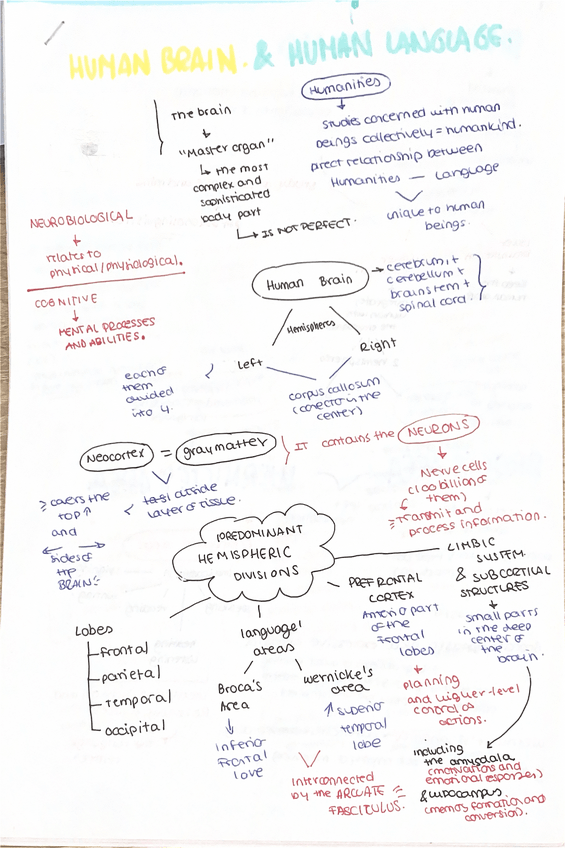 HUMAN BRAIN. & HUMAN LANGUAGE.
The brain
"Master organ"
the most
complex and
sophisticated
body part
IS NOT PERFECT.
Humanities
Studies concerned with human
beings collectively = humankind.
irect relationship between
Humanities — Language
unique to human
beings.
NEUROBIOLOGICAL
relates to
physical/physiological.
COGNITIVE
MENTAL PROCESSES
AND ABILITIES.
Human Brain
cerebrum +
cerebellum +
brainstem +
spinal cord
Hemispheres
Left
Right
each of
them
divided
into 4.
corpus callosum
(conector in the
center)
Neocortex = gray matter
IT contains the NEURONS
covers the
TOP ↑
and
sides of
the
BRAIN
outside
layer of tissue.
Nerve cells
(100 billion of
them)
Transmit and
process information.
PREDOMINANT
HEMISPHERIC
DIVISIONS
LIMBIC
SYSTEM
& SUBCORTICAL
STRUCTURES
small parts
in the deep
center of
the
brain.
PREFRONTAL
CORTEX
Anterio part
of the
Frontal
lobes
planning
and higher-level
control of
actions.
Lobes
frontal
parietal
temporal
occipital
language
areas
Broca's
Area
Inferio
Frontal
love
wernicke's
area
superio
temporal
lobe
Interconnected
by the ARCUATE =
FASCICULUS.
including
the amygdala
(motivations and
emotional responses)
& hippocampus
(memory formation and
conversion).